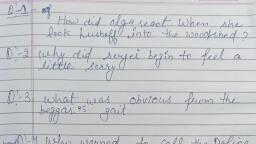 Q'-1 - How did olga react when she
took lushoff into the woodshed?
Q'-2 why did sergei begin to feel a
little sorry
Q'-3 what was obvious from the
beggar's gait
Q'-4 Who wanted to call the Police